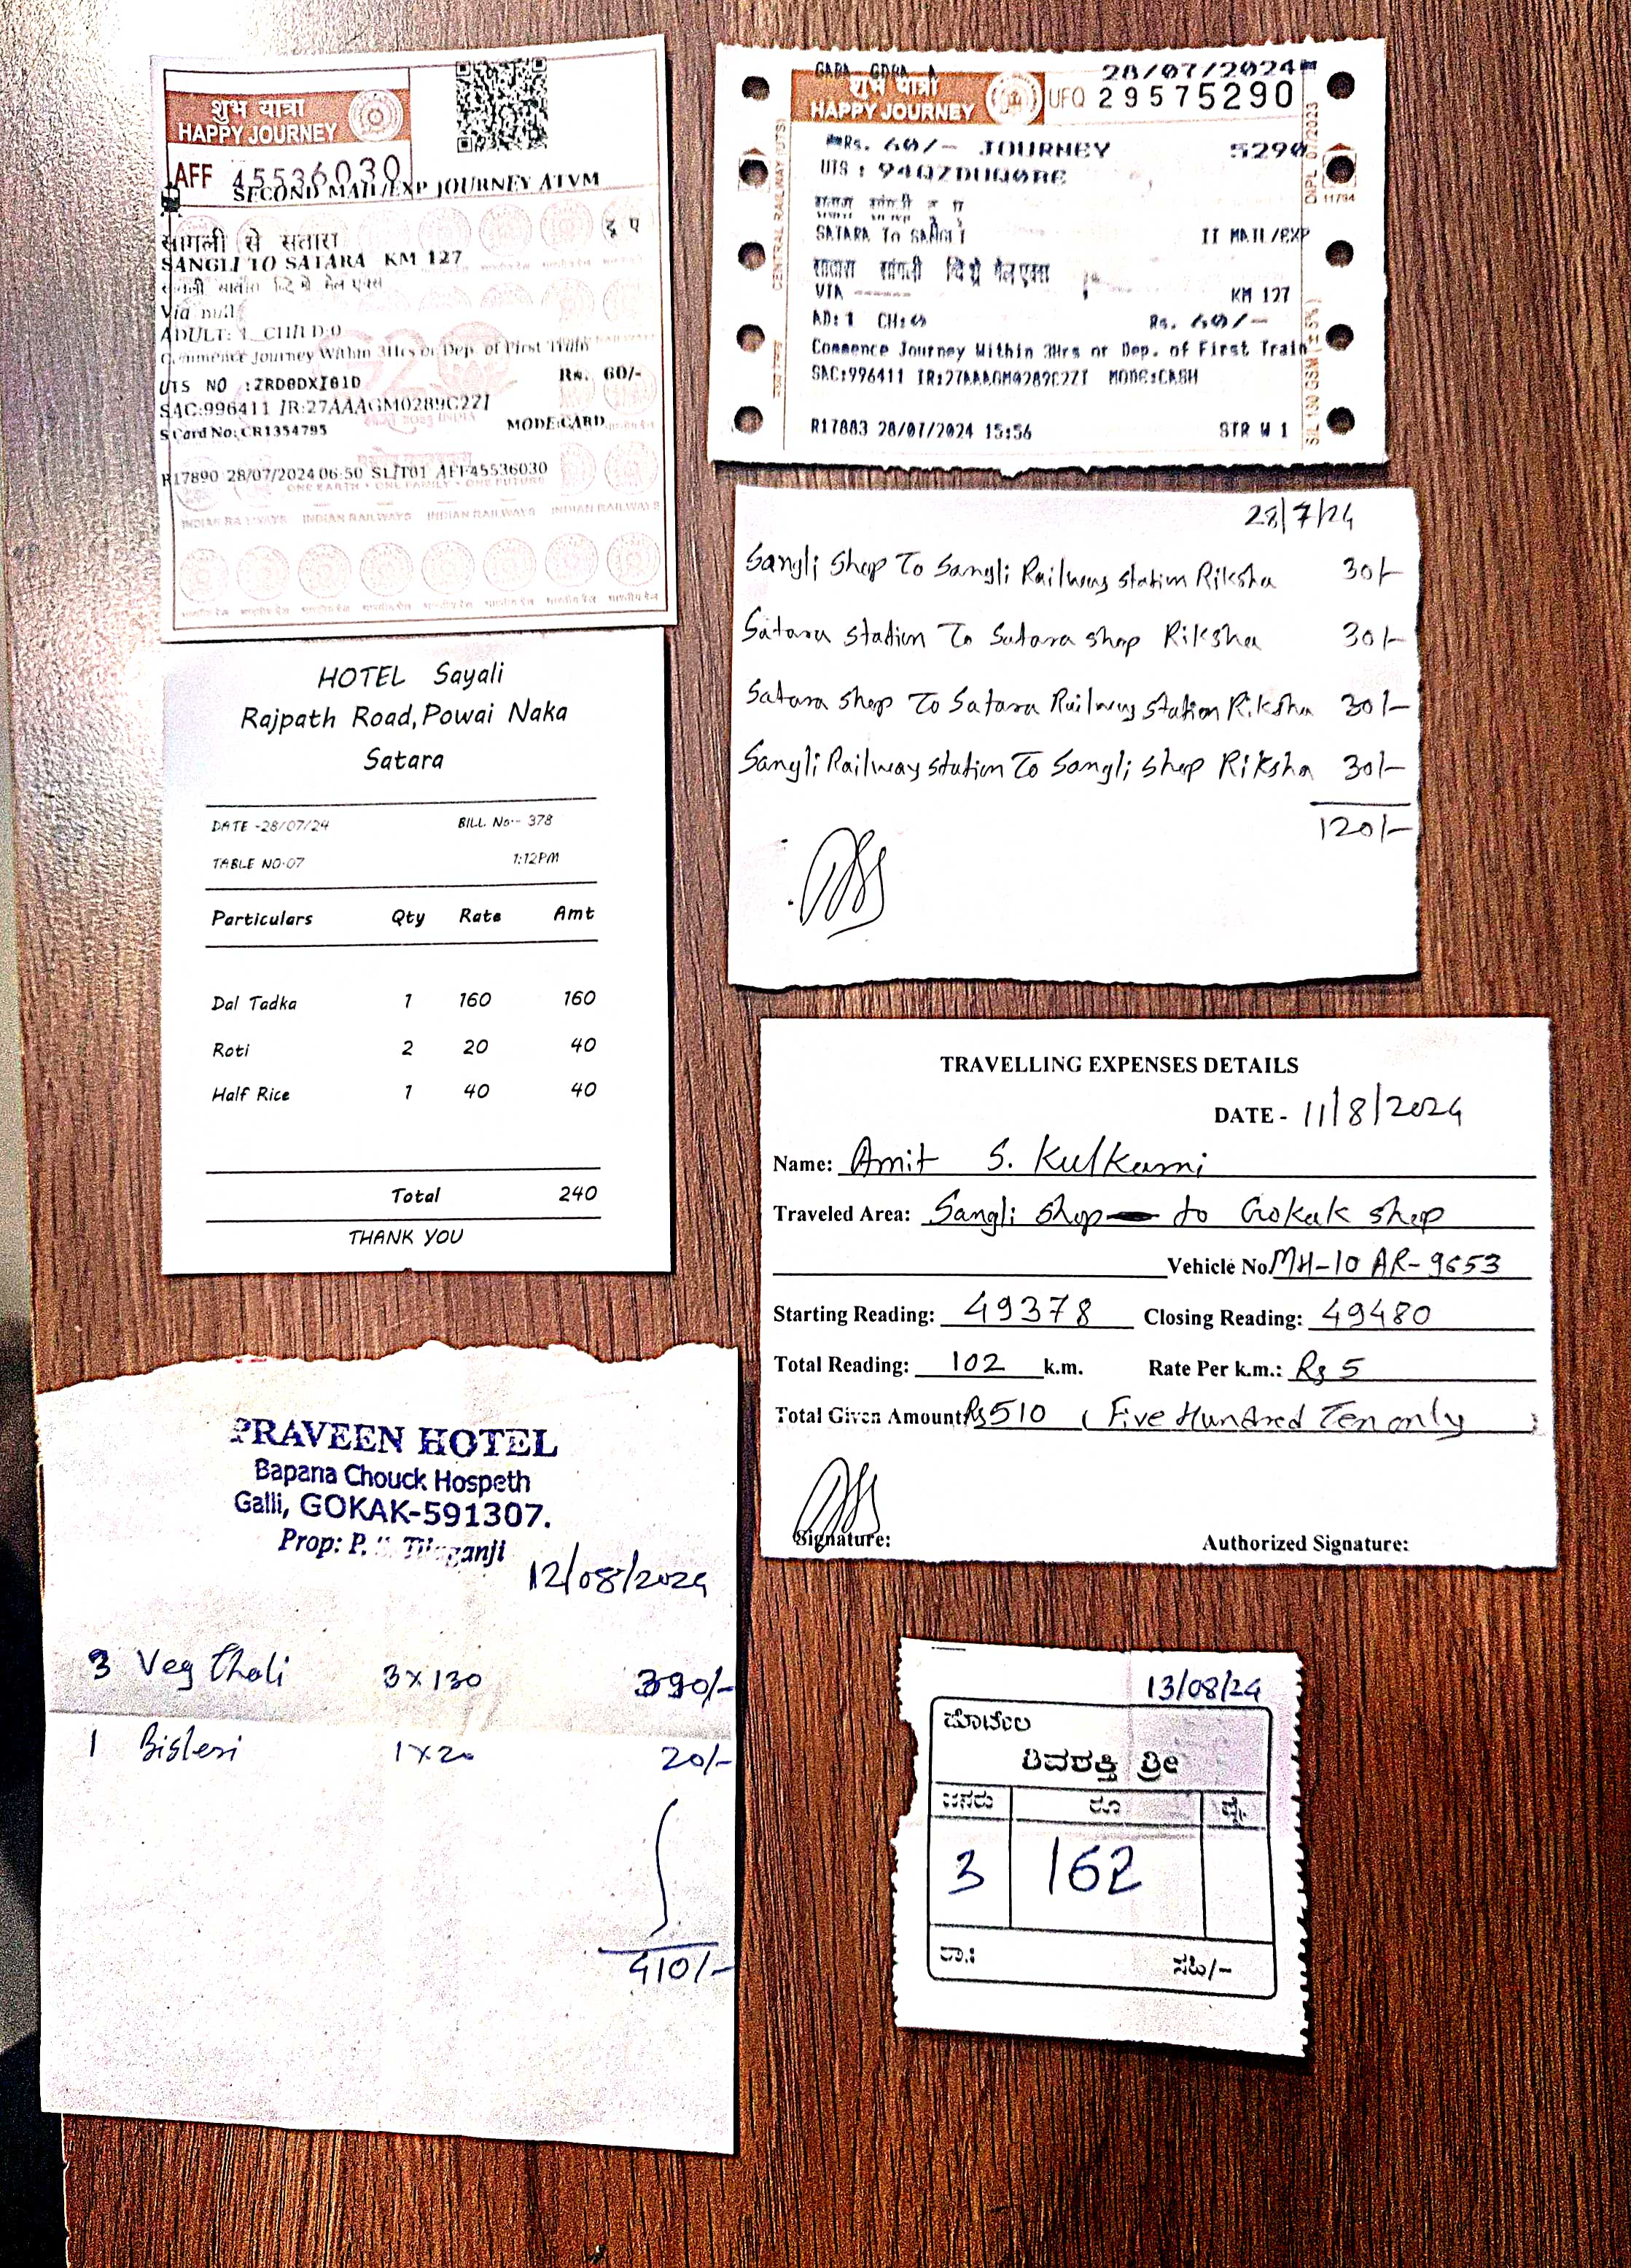 शुभ यात्रा
HAPPY JOURNEY
AFF 45536030
SECOND MAIL/EXP JOURNEY ATVM
सांगली से सतारा
SANGLI TO SATARA KM 127
Via null
ADULT: 1 CHILD:0
Commence Journey Within 3Hrs or Dep. of First Train
UTS NO :ZRD0DXI01D
Rs. 60/-
SAC:996411 IR:27AAAGM0289C2ZI
SCard No: CR1354795
MODE:CARD
R17890 28/07/2024 06:50 SLIT01 AFF45536030
ONE EARTH • ONE FAMILY • ONE FUTURE
INDIAN RAILWAYS INDIAN RAILWAYS INDIAN RAILWAYS INDIAN RAILWAYS
28/07/2024
शुभ यात्रा
HAPPY JOURNEY
UFQ 29575290
Rs. 60/- JOURNEY 5290
SATARA To SANGLI II MAIL/EXP
सातारा सांगली
VIA ------ KM 127
AD:1 CH:0 Rs. 60/-
Commence Journey Within 3Hrs or Dep. of First Train
SAC:996411 IR:27AAAGM0289C2ZI MODE:CASH
R17883 28/07/2024 15:56 STR W 1
28/7/24
Sangli Shop To Sangli Railway station Riksha 30/-
Satara station To Satara shop Riksha 30/-
Satara shop To Satara Railway station Riksha 30/-
Sangli Railway station To Sangli shop Riksha 30/-
120/-
HOTEL Sayali
Rajpath Road, Powai Naka
Satara
DATE -28/07/24 BILL No:- 378
TABLE NO-07 1:12PM
Particulars Qty Rate Amt
Dal Tadka 1 160 160
Roti 2 20 40
Half Rice 1 40 40
Total 240
THANK YOU
TRAVELLING EXPENSES DETAILS
DATE - 11/8/2024
Name: Amit S. Kulkarni
Traveled Area: Sangli shop to Gokak shop
Vehicle No. MH-10 AR-9653
Starting Reading: 49378 Closing Reading: 49480
Total Reading: 102 k.m. Rate Per k.m.: Rs 5
Total Given Amount Rs 510 (Five Hundred Ten only)
Signature: Authorized Signature:
PRAVEEN HOTEL
Bapana Chouck Hospeth
Galli, GOKAK-591307.
Prop: P.
12/08/2024
3 Veg Thali 3x130 390/-
1 Bisleri 1x20 20/-
410/-
13/08/24
ಹೊಟೇಲ
ಶಿವಶಕ್ತಿ ಶ್ರೀ
ಜನರು ರೂ ಪೈ
3 162
ತಾ.: ಸಹಿ/-